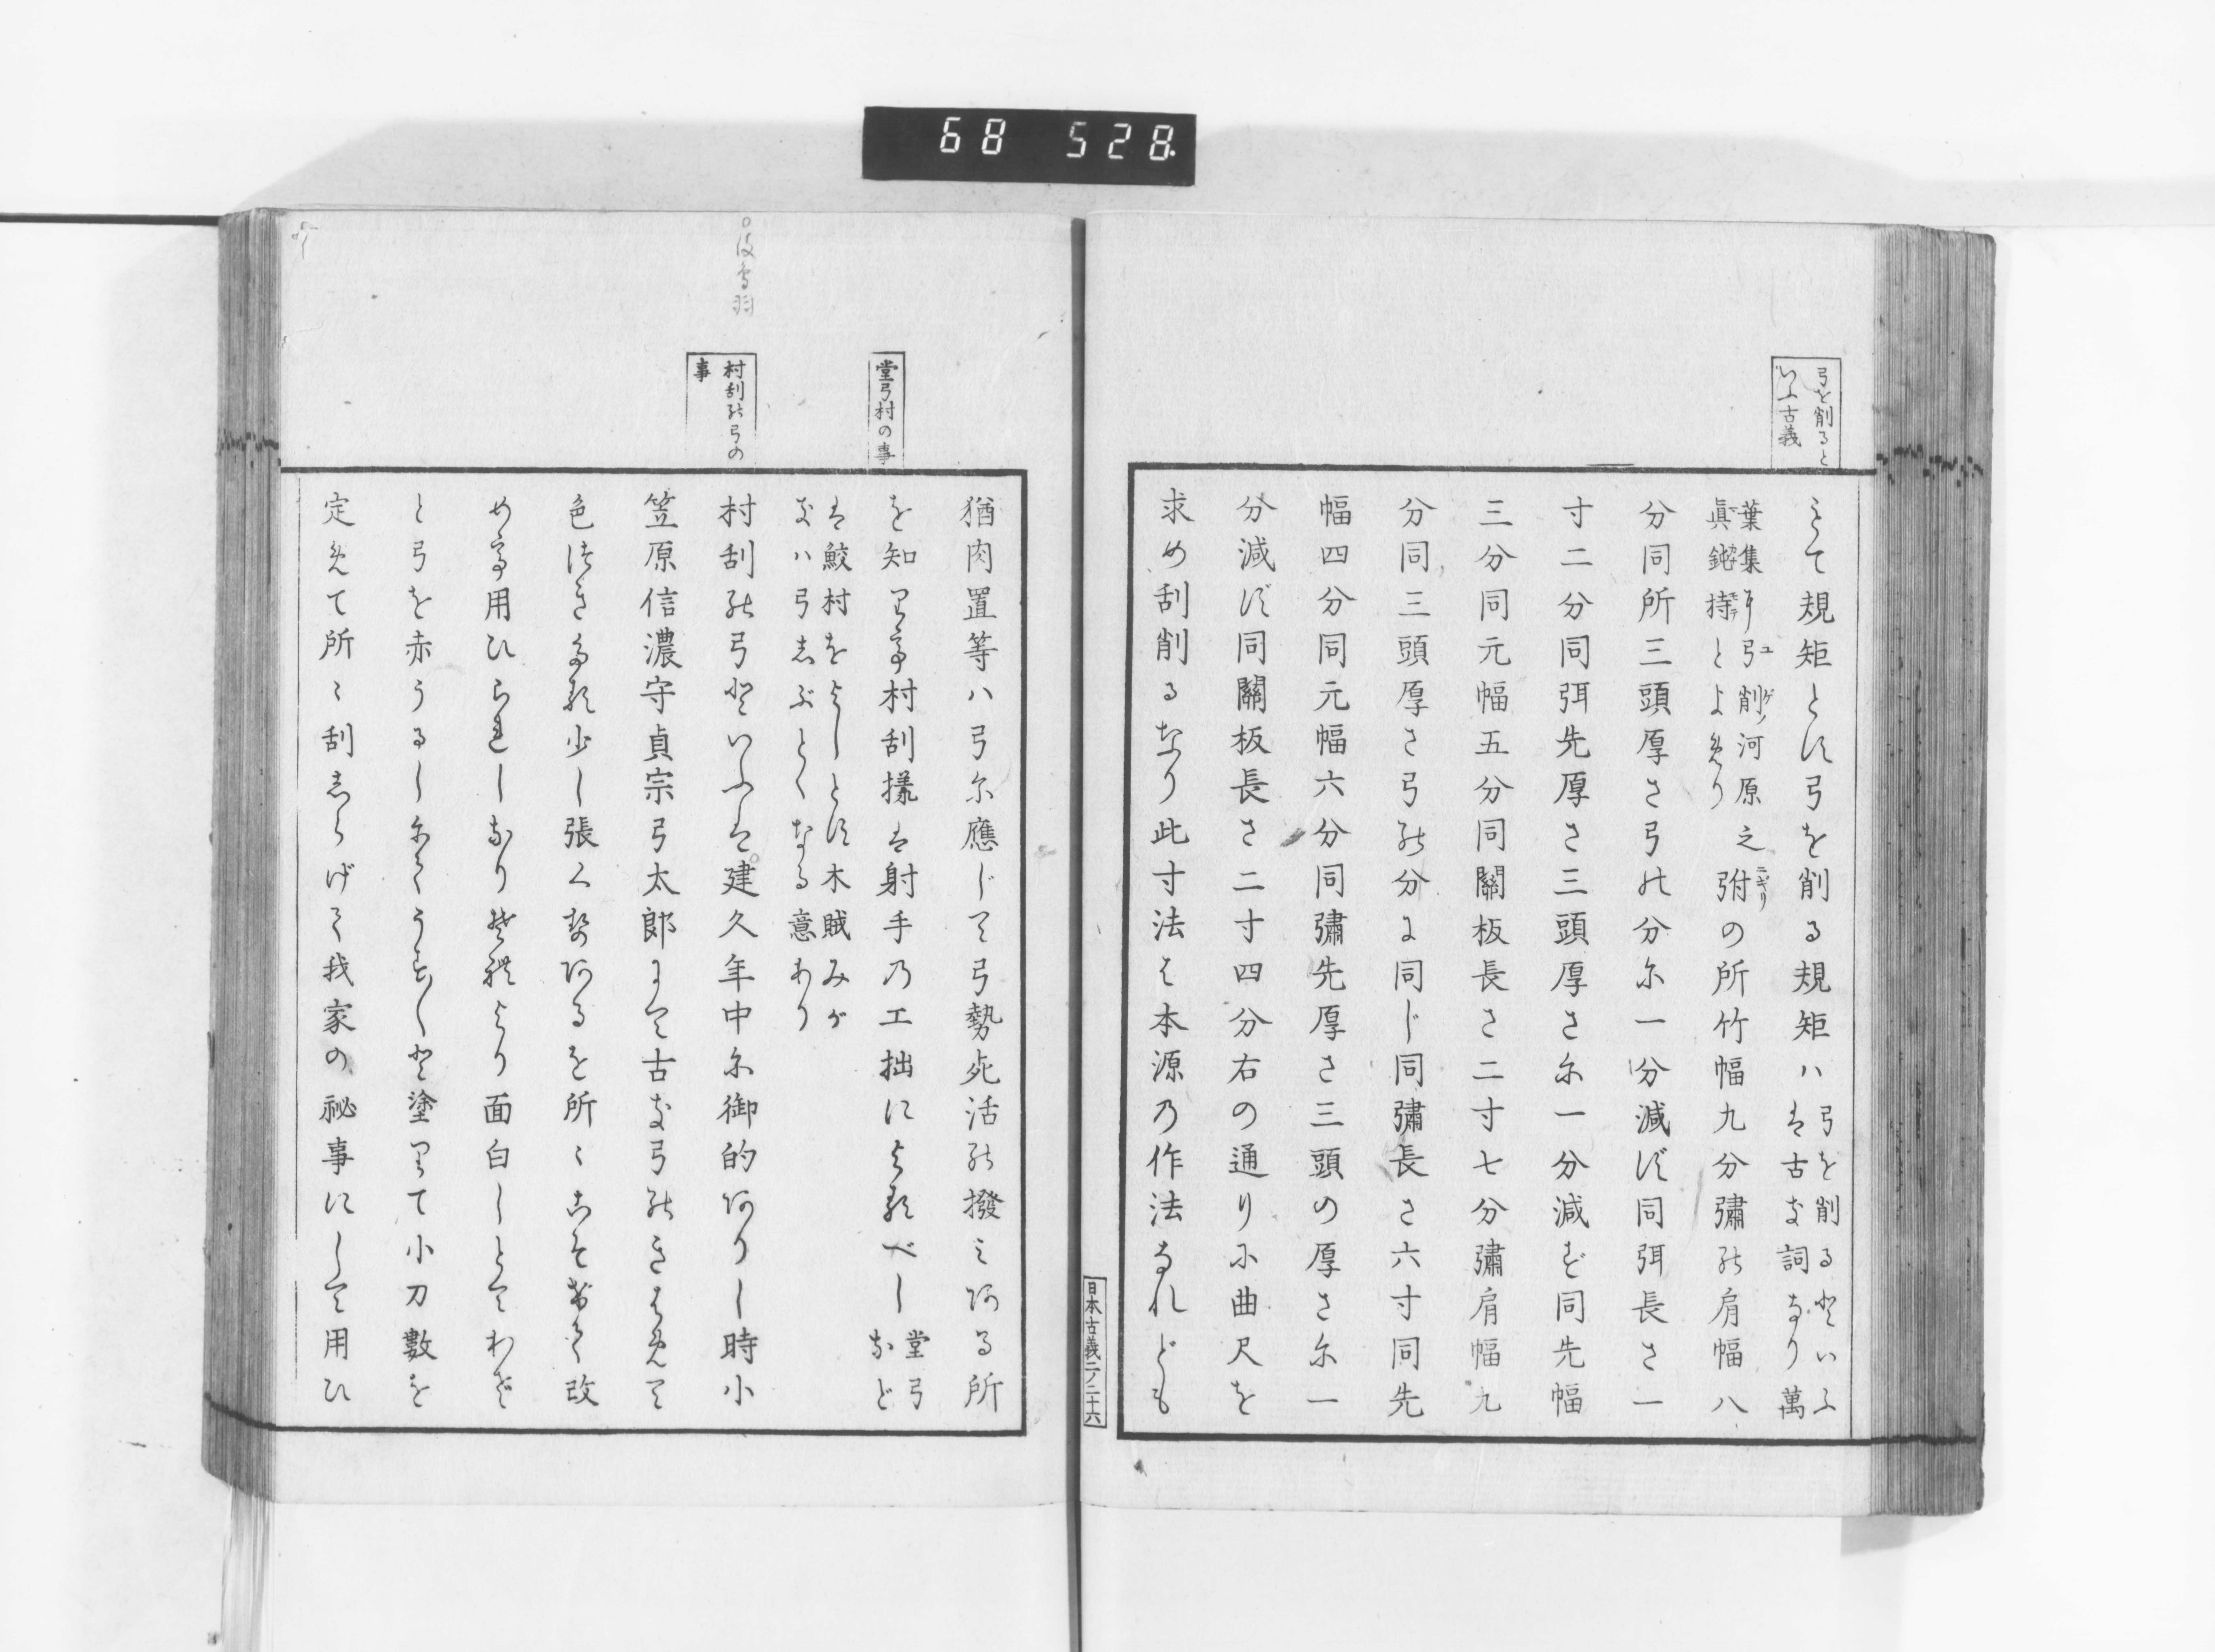 68 528
弓を削ると
いふ古義
みて規矩とす弓を削る規矩ハ
弓を削るといふ
は古き詞なり萬
葉集ニ弓削ノ河原之
眞鉋持とよめり
弣の所竹幅九分彇の肩幅八
分同所三頭厚さ弓の分に一分減ず同弭長さ一
寸二分同弭先厚さ三頭厚さに一分減ず同先幅
三分同元幅五分同關板長さ二寸七分彇肩幅九
分同三頭厚さ弓の分に同じ同彇長さ六寸同先
幅四分同元幅六分同彇先厚さ三頭の厚さに一
分減ず同關板長さ二寸四分右の通り小曲尺を
求め刮削るなり此寸法は本源乃作法なれども
日本古義二ノ二十六
堂弓村の事
村刮の弓の
事
猶肉置等ハ弓に應じて弓勢死活の撥ミある所
を知りて村刮樣は射手乃工拙によるべし
堂弓
など
は鮫村をよしとす木賊みが
きハ弓しぶとくなる意あり
村刮の弓といふは建久年中に御的ありし時小
笠原信濃守貞宗弓太郎にて古き弓のきはめて
色つきたる少し張く勢あるを所〻こそげて改
め用ひられしなり其躰より面白しとてわざ
と弓を赤うるしにてうすく塗りて小刀數を
定めて所〻刮しらげて我家の祕事にして用ひ